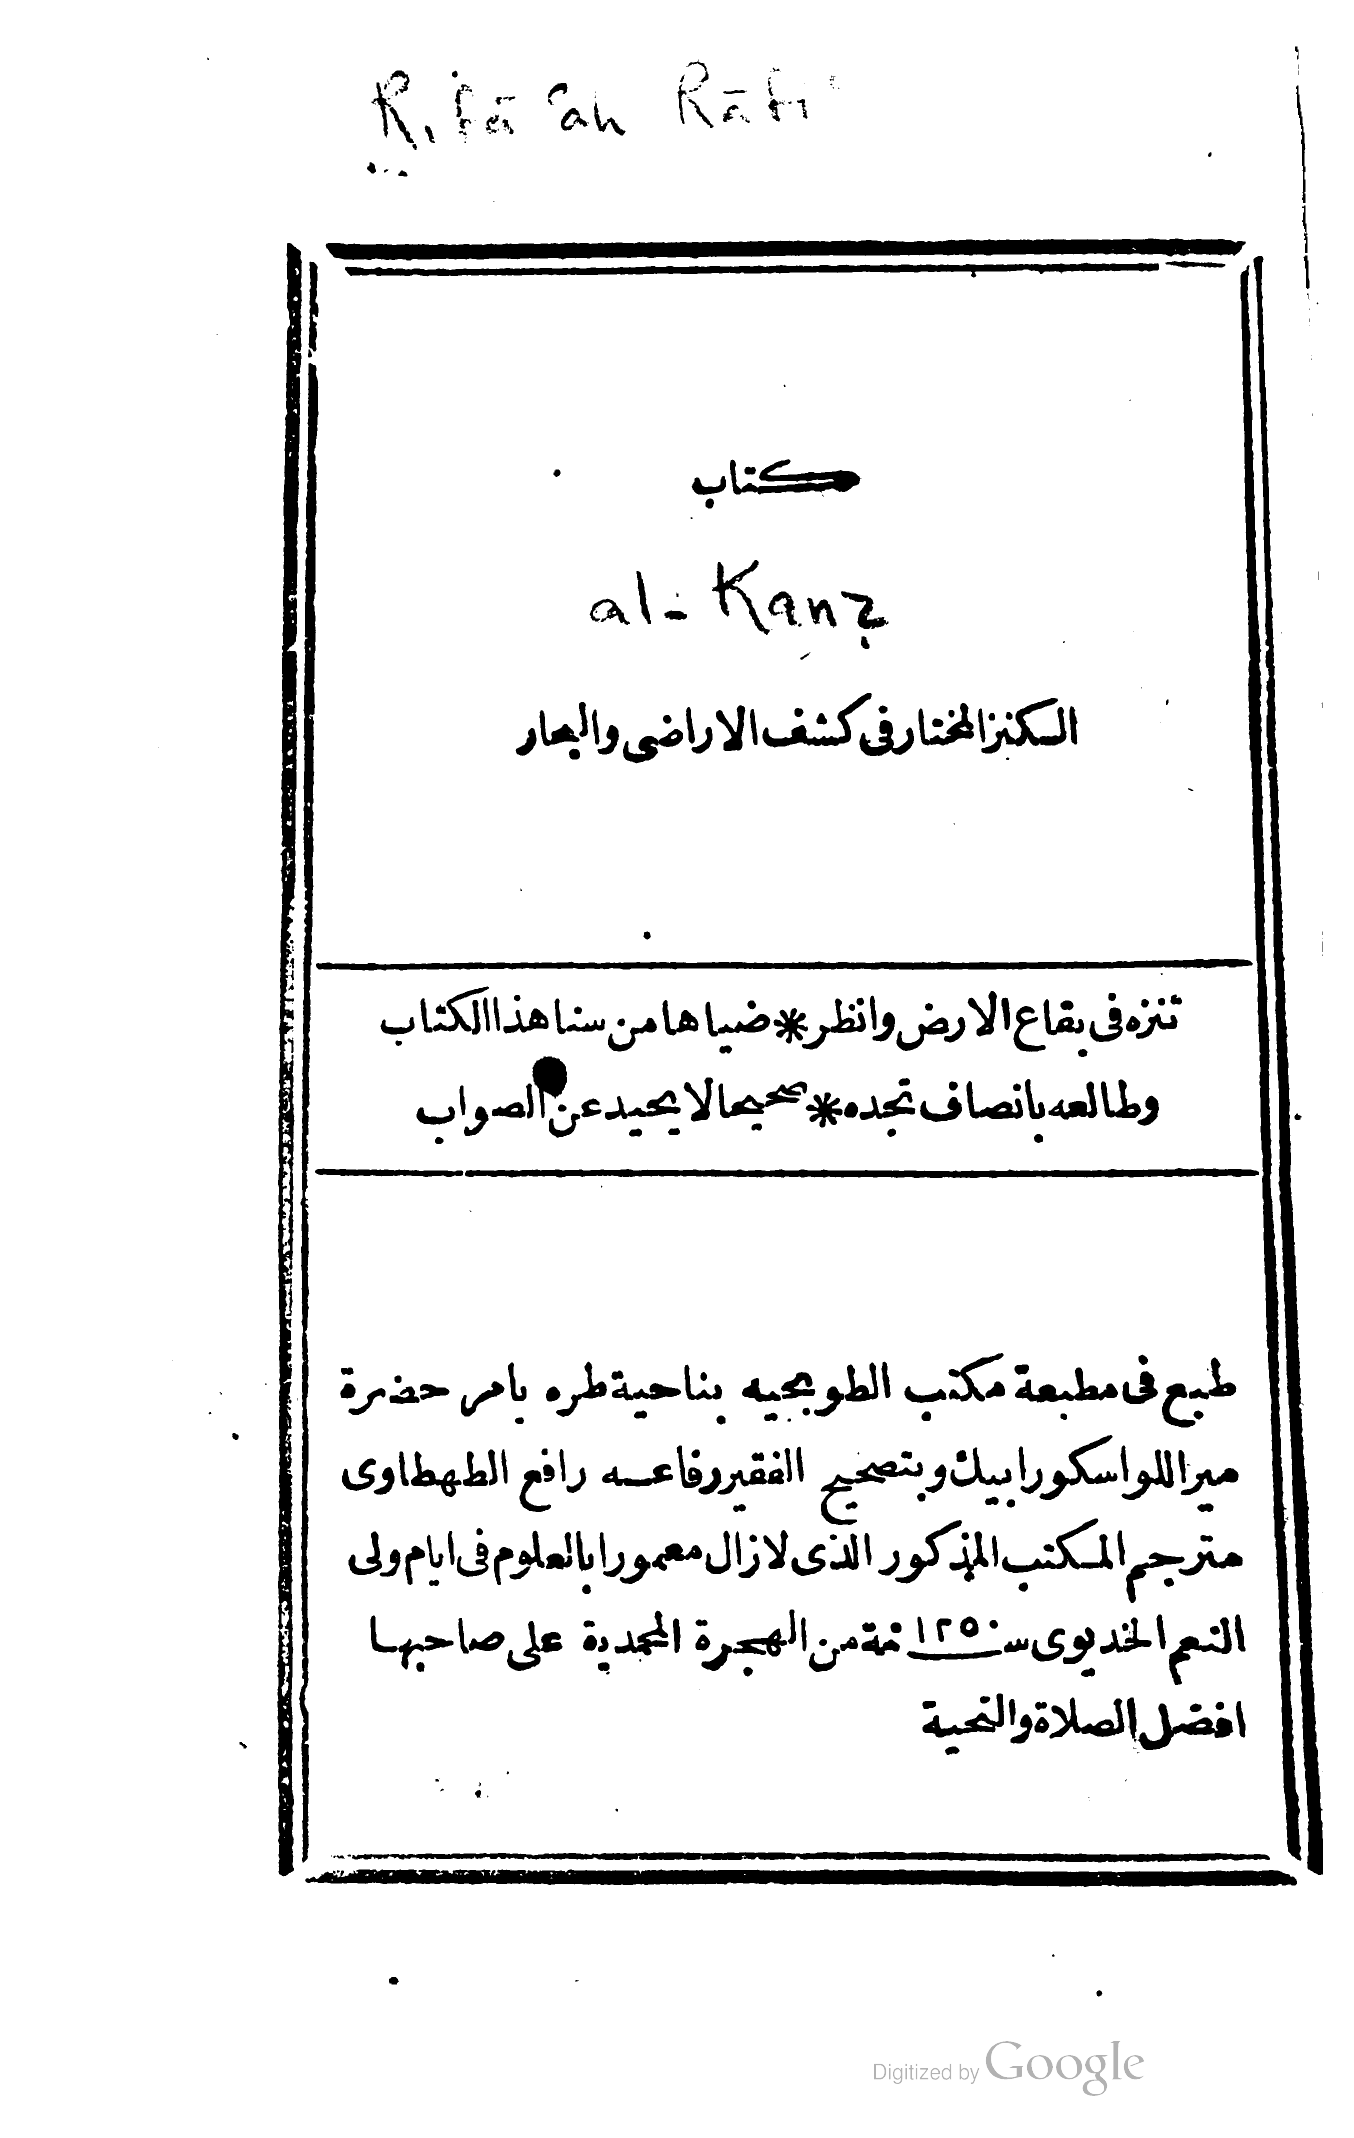 Rifā‘ah Rāfi‘
كتاب
al-Kanz
الكنز المختار فى كشف الاراضى والبحار
تنزه فى بقاع الارض وانظر * ضياها من سنا هذا الكتاب
وطالعه بانصاف تجده * صحيحا لا يحيد عن الصواب
طبع فى مطبعة مكتب الطوبجيه بناحية طره بامر حضرة
مير اللوا سكورا بيك وبتصحيح الفقير رفاعه رافع الطهطاوى
مترجم المكتب المذكور الذى لازال معمورا بالعلوم فى ايام ولى
النعم الخديوى سنة ١٢٥٠ من الهجرة المحمدية على صاحبها
افضل الصلاة والتحية
Digitized by Google